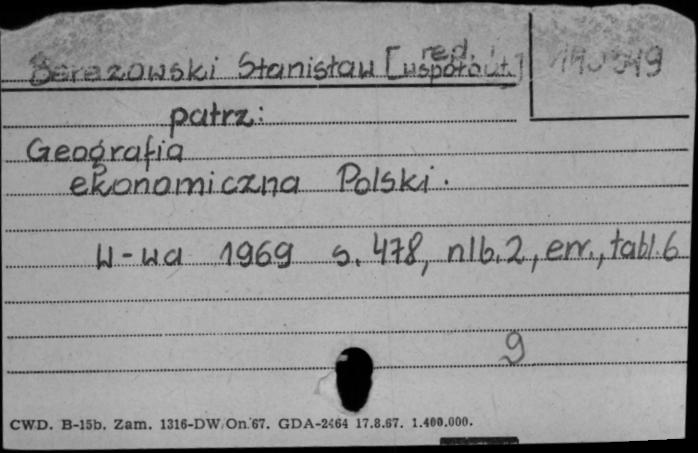 red.
Berezowski Stanisław [współaut.]
patrz:
Geografia
ekonomiczna Polski.
W-wa 1969 s. 478, nlb. 2, err., tabl. 6
9
CWD. B-15b. Zam. 1316-DW/On.67. GDA-2464 17.8.67. 1.400.000.